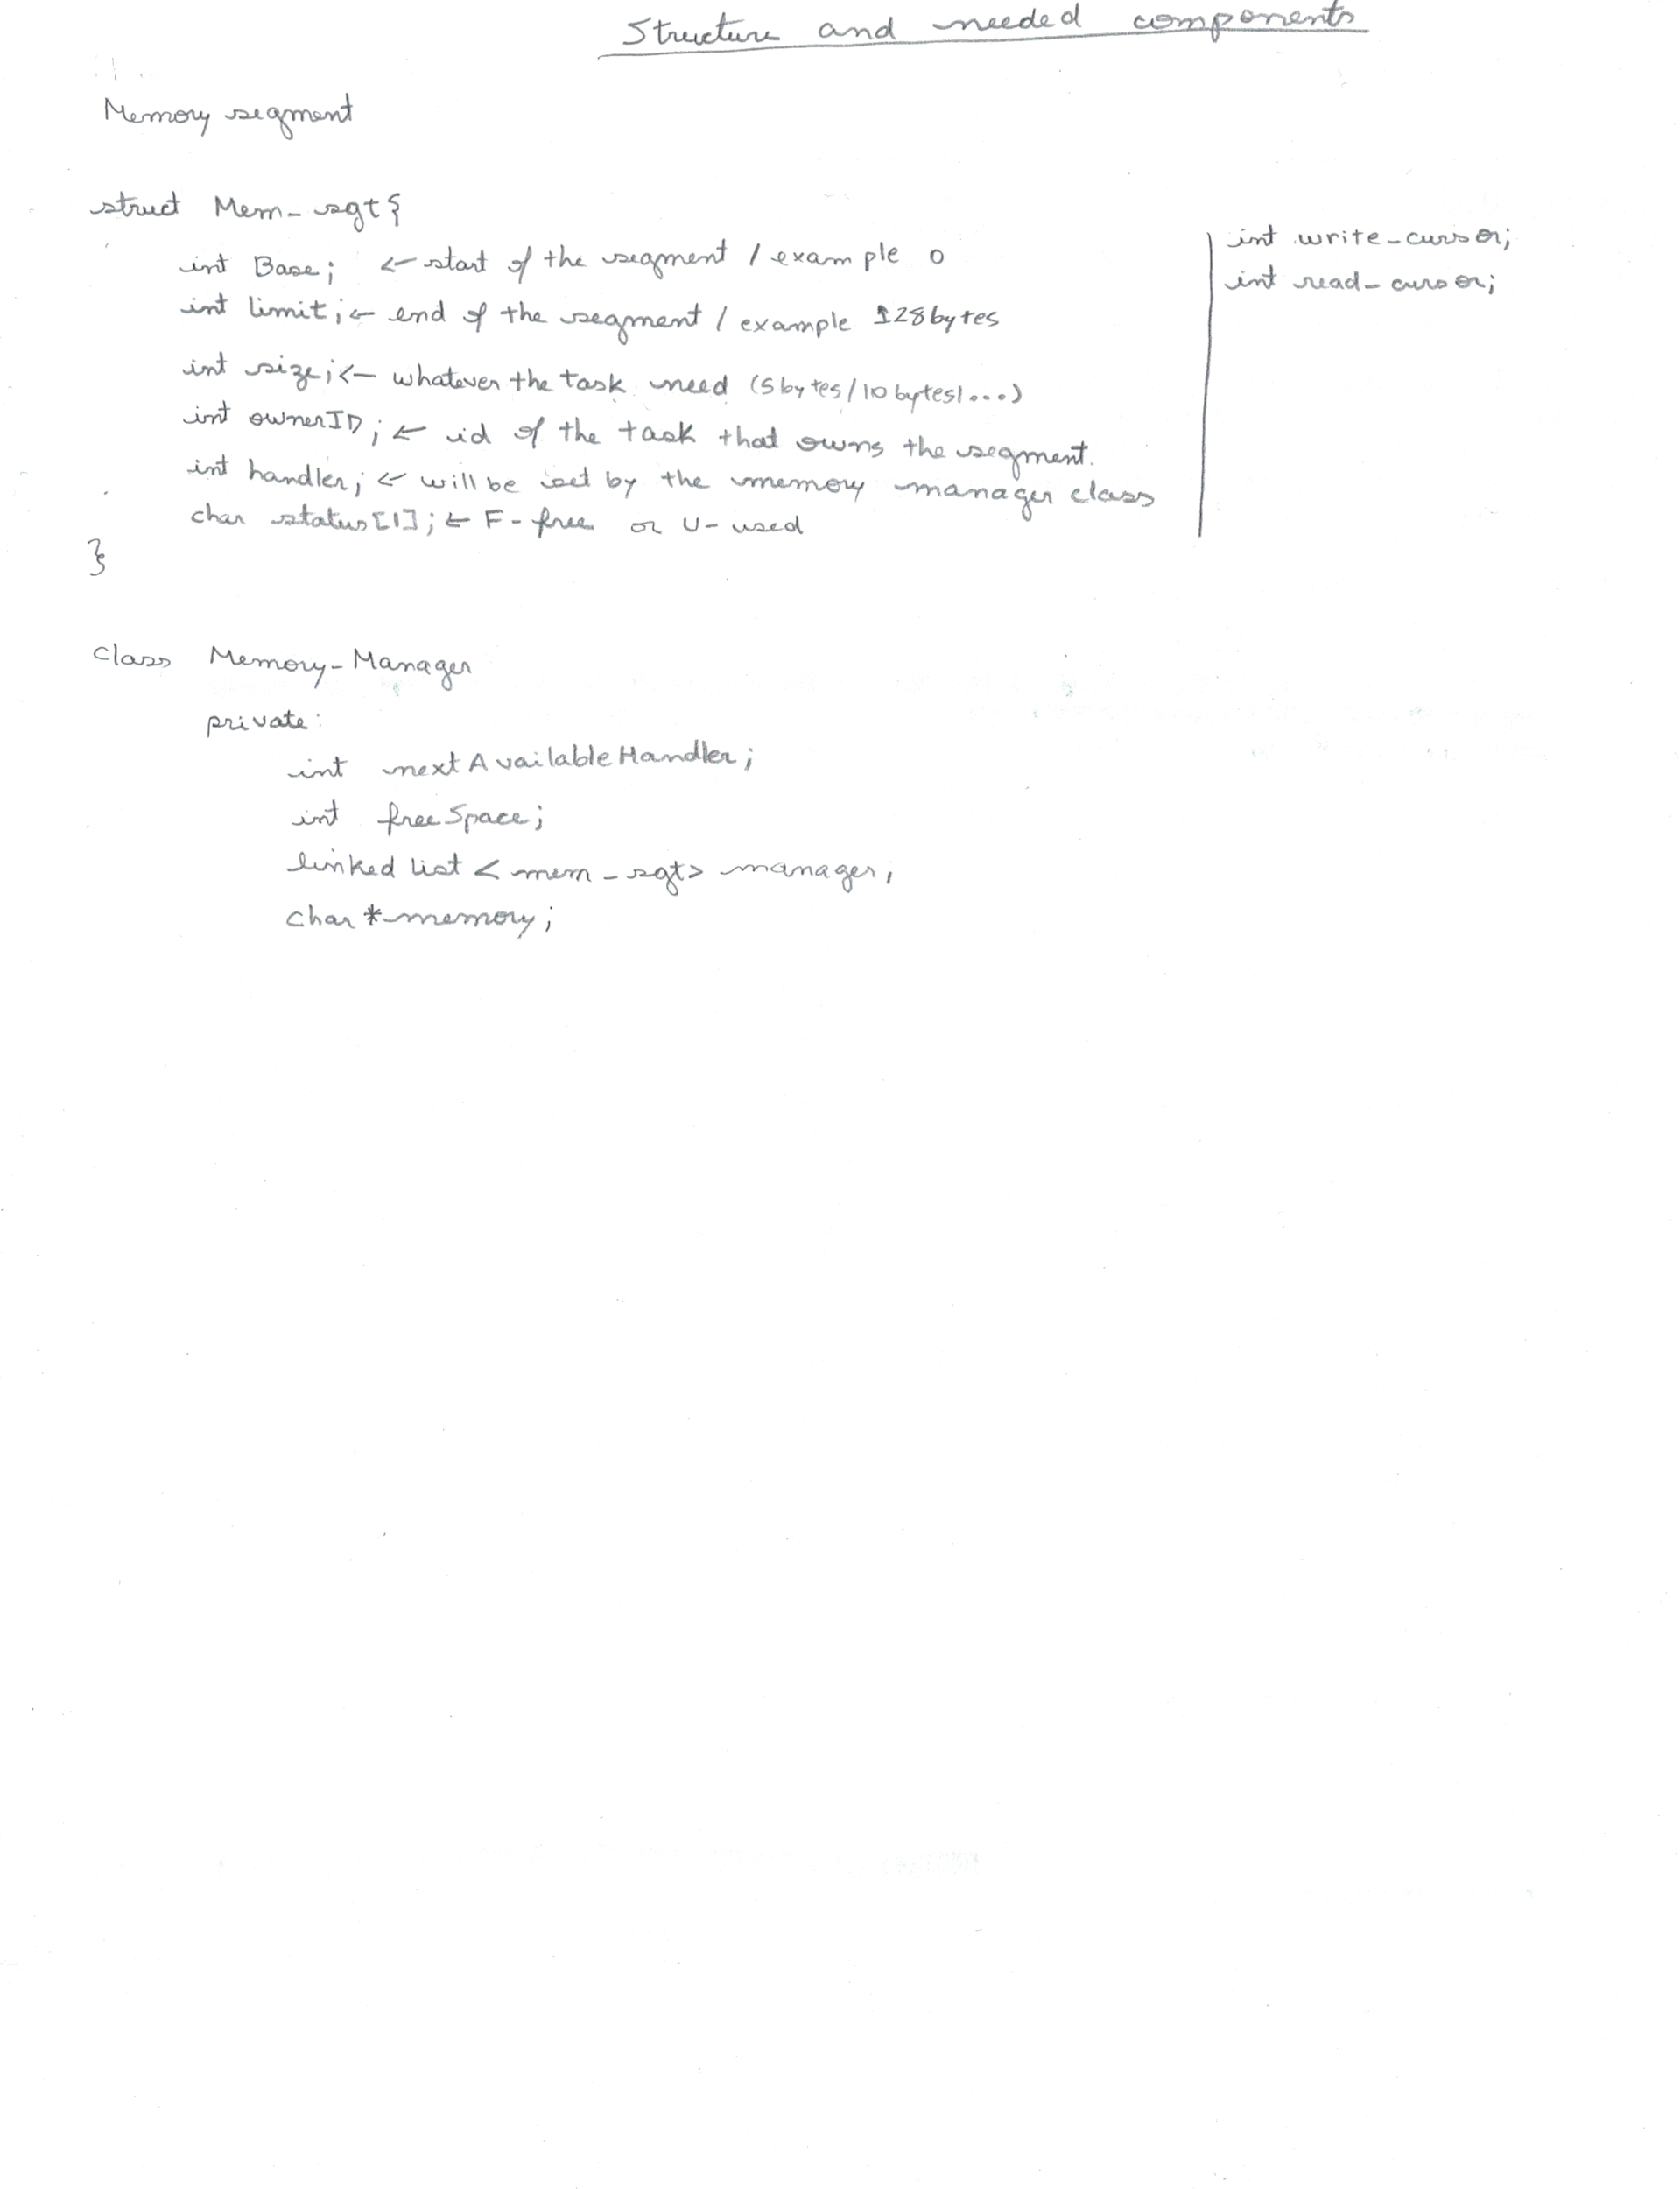 Structure and needed components
Memory segment
struct Mem_sgt{
int Base; ← start of the segment / example 0
int limit; ← end of the segment / example 128bytes
int size; ← whatever the task need (5bytes/10bytes/...)
int ownerID; ← id of the task that owns the segment.
int handler; ← will be set by the memory manager class
char status[1]; ← F-free or U-used
}
int write_cursor;
int read_cursor;
class Memory-Manager
private:
int nextAvailableHandler;
int freeSpace;
linked list <mem_sgt> manager;
char *memory;